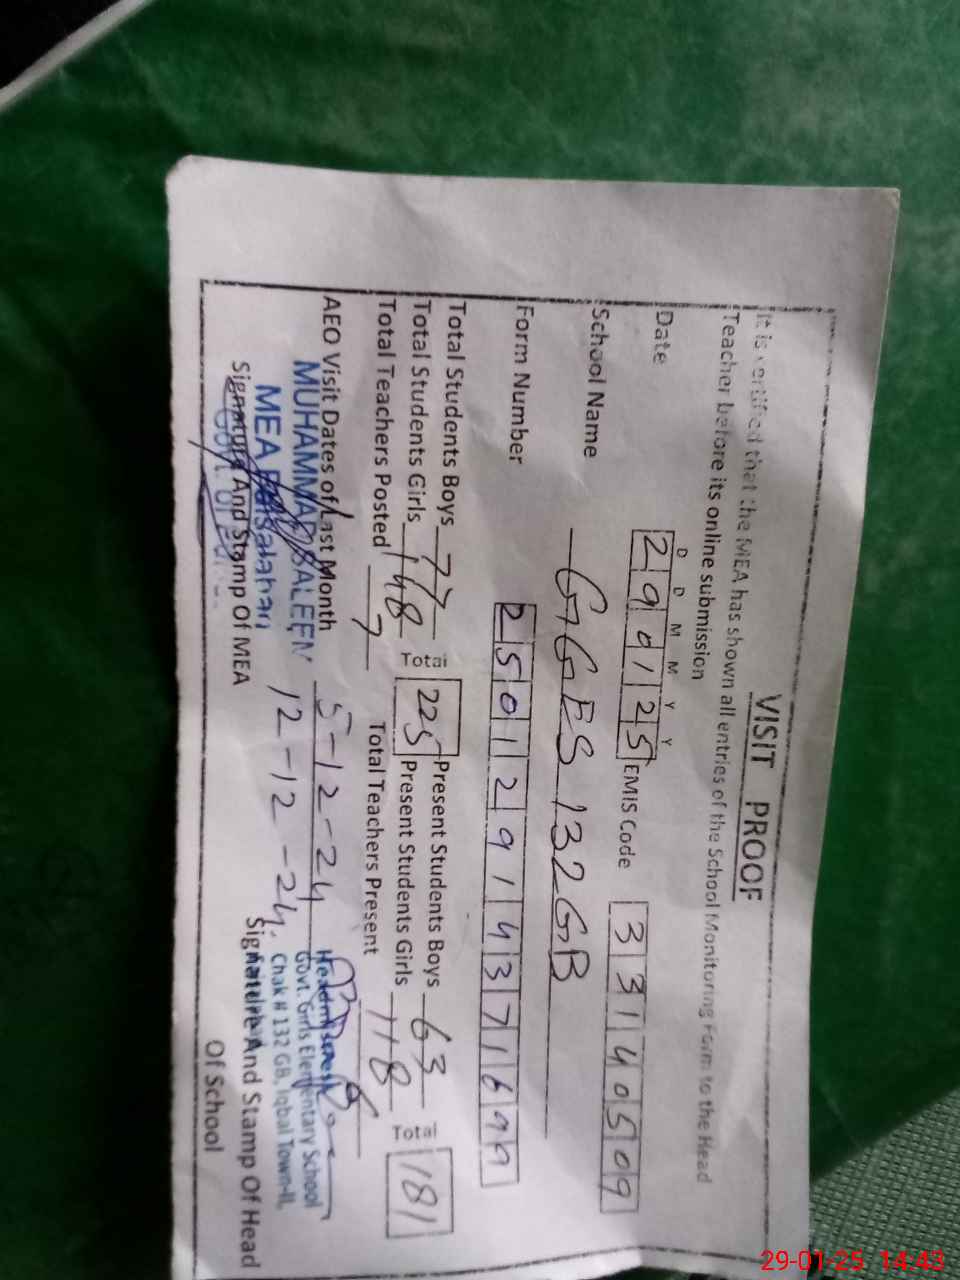 VISIT PROOF
It is certified that the MEA has shown all entries of the School Monitoring Form to the Head
Teacher before its online submission
D D M M Y Y
Date 290125 EMIS Code 33140509
School Name GGES 132GB
Form Number 2501291437169
Total Students Boys 77 Total 225 Present Students Boys 63 Total 181
Total Students Girls 148 Present Students Girls 118
Total Teachers Posted 7 Total Teachers Present 6
AEO Visit Dates of Last Month 5-12-24
12-12-24
MUHAMMAD SALEEM
MEA Faisalabad
Signature And Stamp Of MEA
Headmistress
Govt. Girls Elementary School
Chak # 132 GB, Iqbal Town-II,
Signature And Stamp Of Head
Of School
29-01-25 14:43